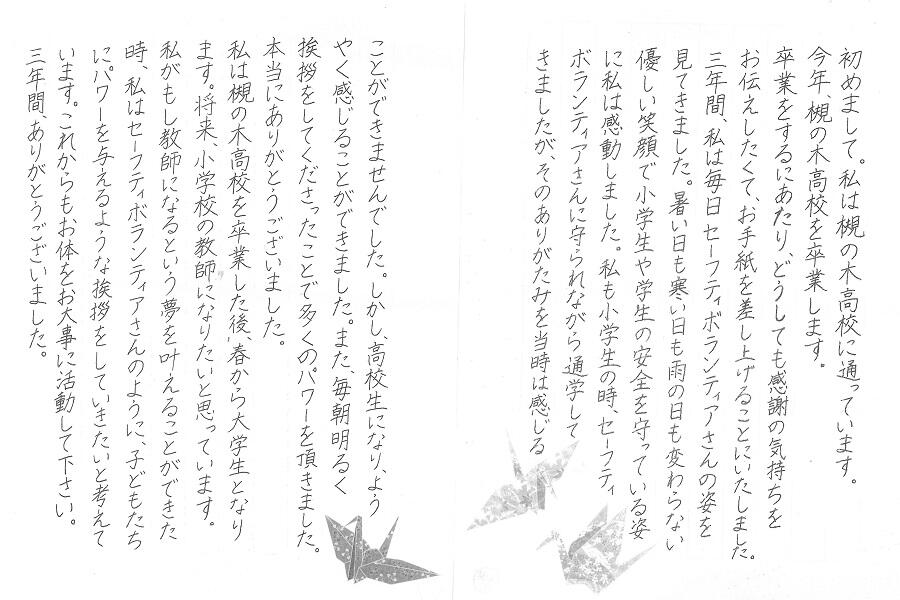 初めまして。私は槻の木高校に通っています。
今年、槻の木高校を卒業します。
卒業をするにあたり、どうしても感謝の気持ちを
お伝えしたくて、お手紙を差し上げることにいたしました。
三年間、私は毎日セーフティボランティアさんの姿を
見てきました。暑い日も寒い日も雨の日も変わらない
優しい笑顔で小学生や学生の安全を守っている姿
に私は感動しました。私も小学生の時、セーフティ
ボランティアさんに守られながら通学して
きましたが、そのありがたみを当時は感じる
ことができませんでした。しかし、高校生になり、よう
やく感じることができました。また、毎朝明るく
挨拶をしてくださったことで多くのパワーを頂きました。
本当にありがとうございました。
私は槻の木高校を卒業した後、春から大学生となり
ます。将来、小学校の教師になりたいと思っています。
私がもし教師になるという夢を叶えることができた
時、私はセーフティボランティアさんのように、子どもたち
にパワーを与えるような挨拶をしていきたいと考えて
います。これからもお体をお大事に活動して下さい。
三年間、ありがとうございました。